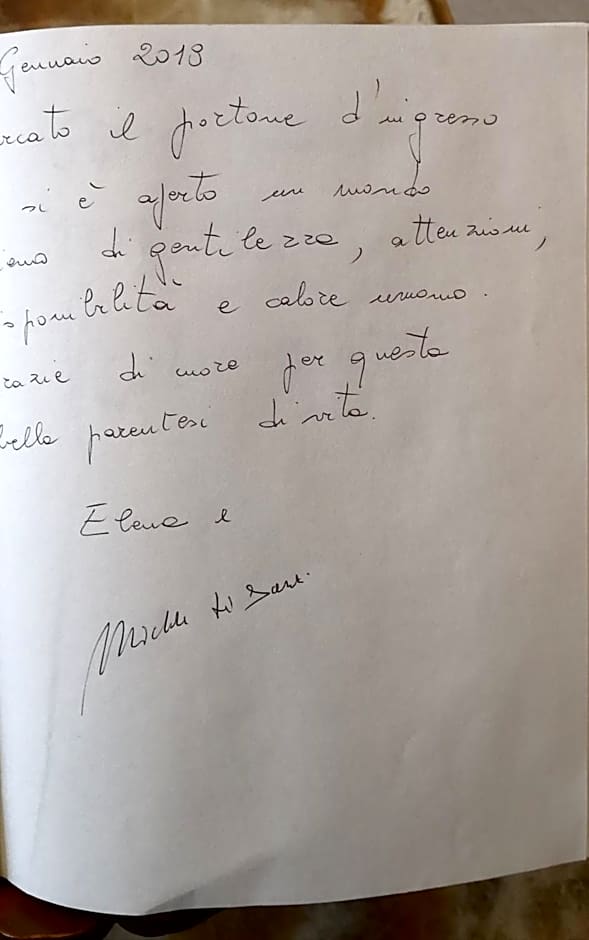 Gennaio 2019
rcato il portone d'ingresso
si è aperto un mondo
ieno di gentilezze, attenzioni,
sponibilità e calore umano.
razie di cuore per questa
bella parentesi di vita.
Elena e
Michele